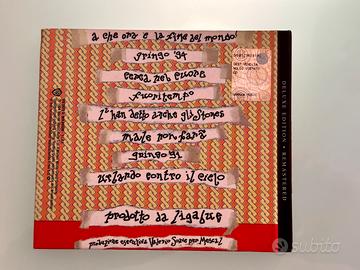 a che ora è la fine del mondo?
gringo '94
cerca nel cuore
fuoritempo
l'han detto anche gli Stones
male non farà
gringo 91
urlando contro il cielo
prodotto da ligabue
produzione esecutiva Valerio Soave per Mescal
DELUXE EDITION • REMASTERED
subito